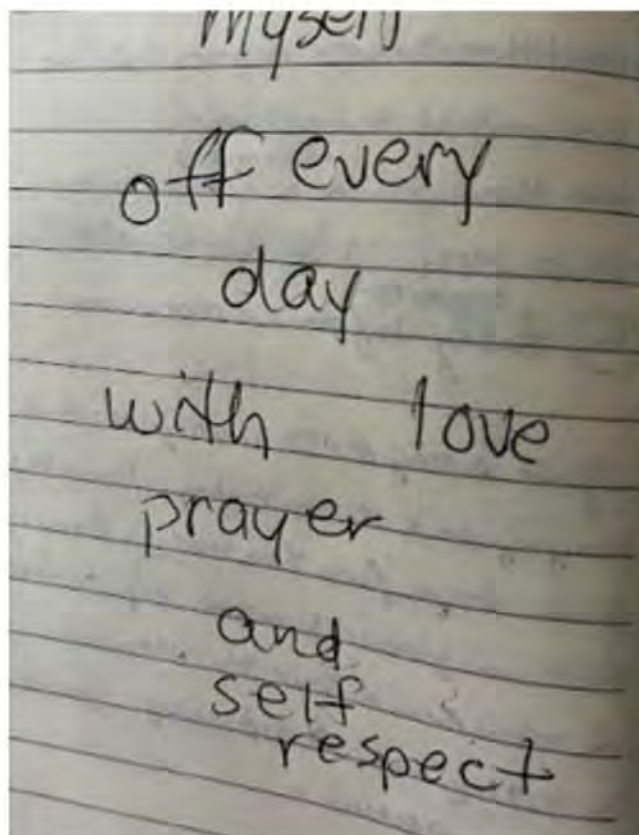 myself
off every
day
with love
prayer
and
self
respect